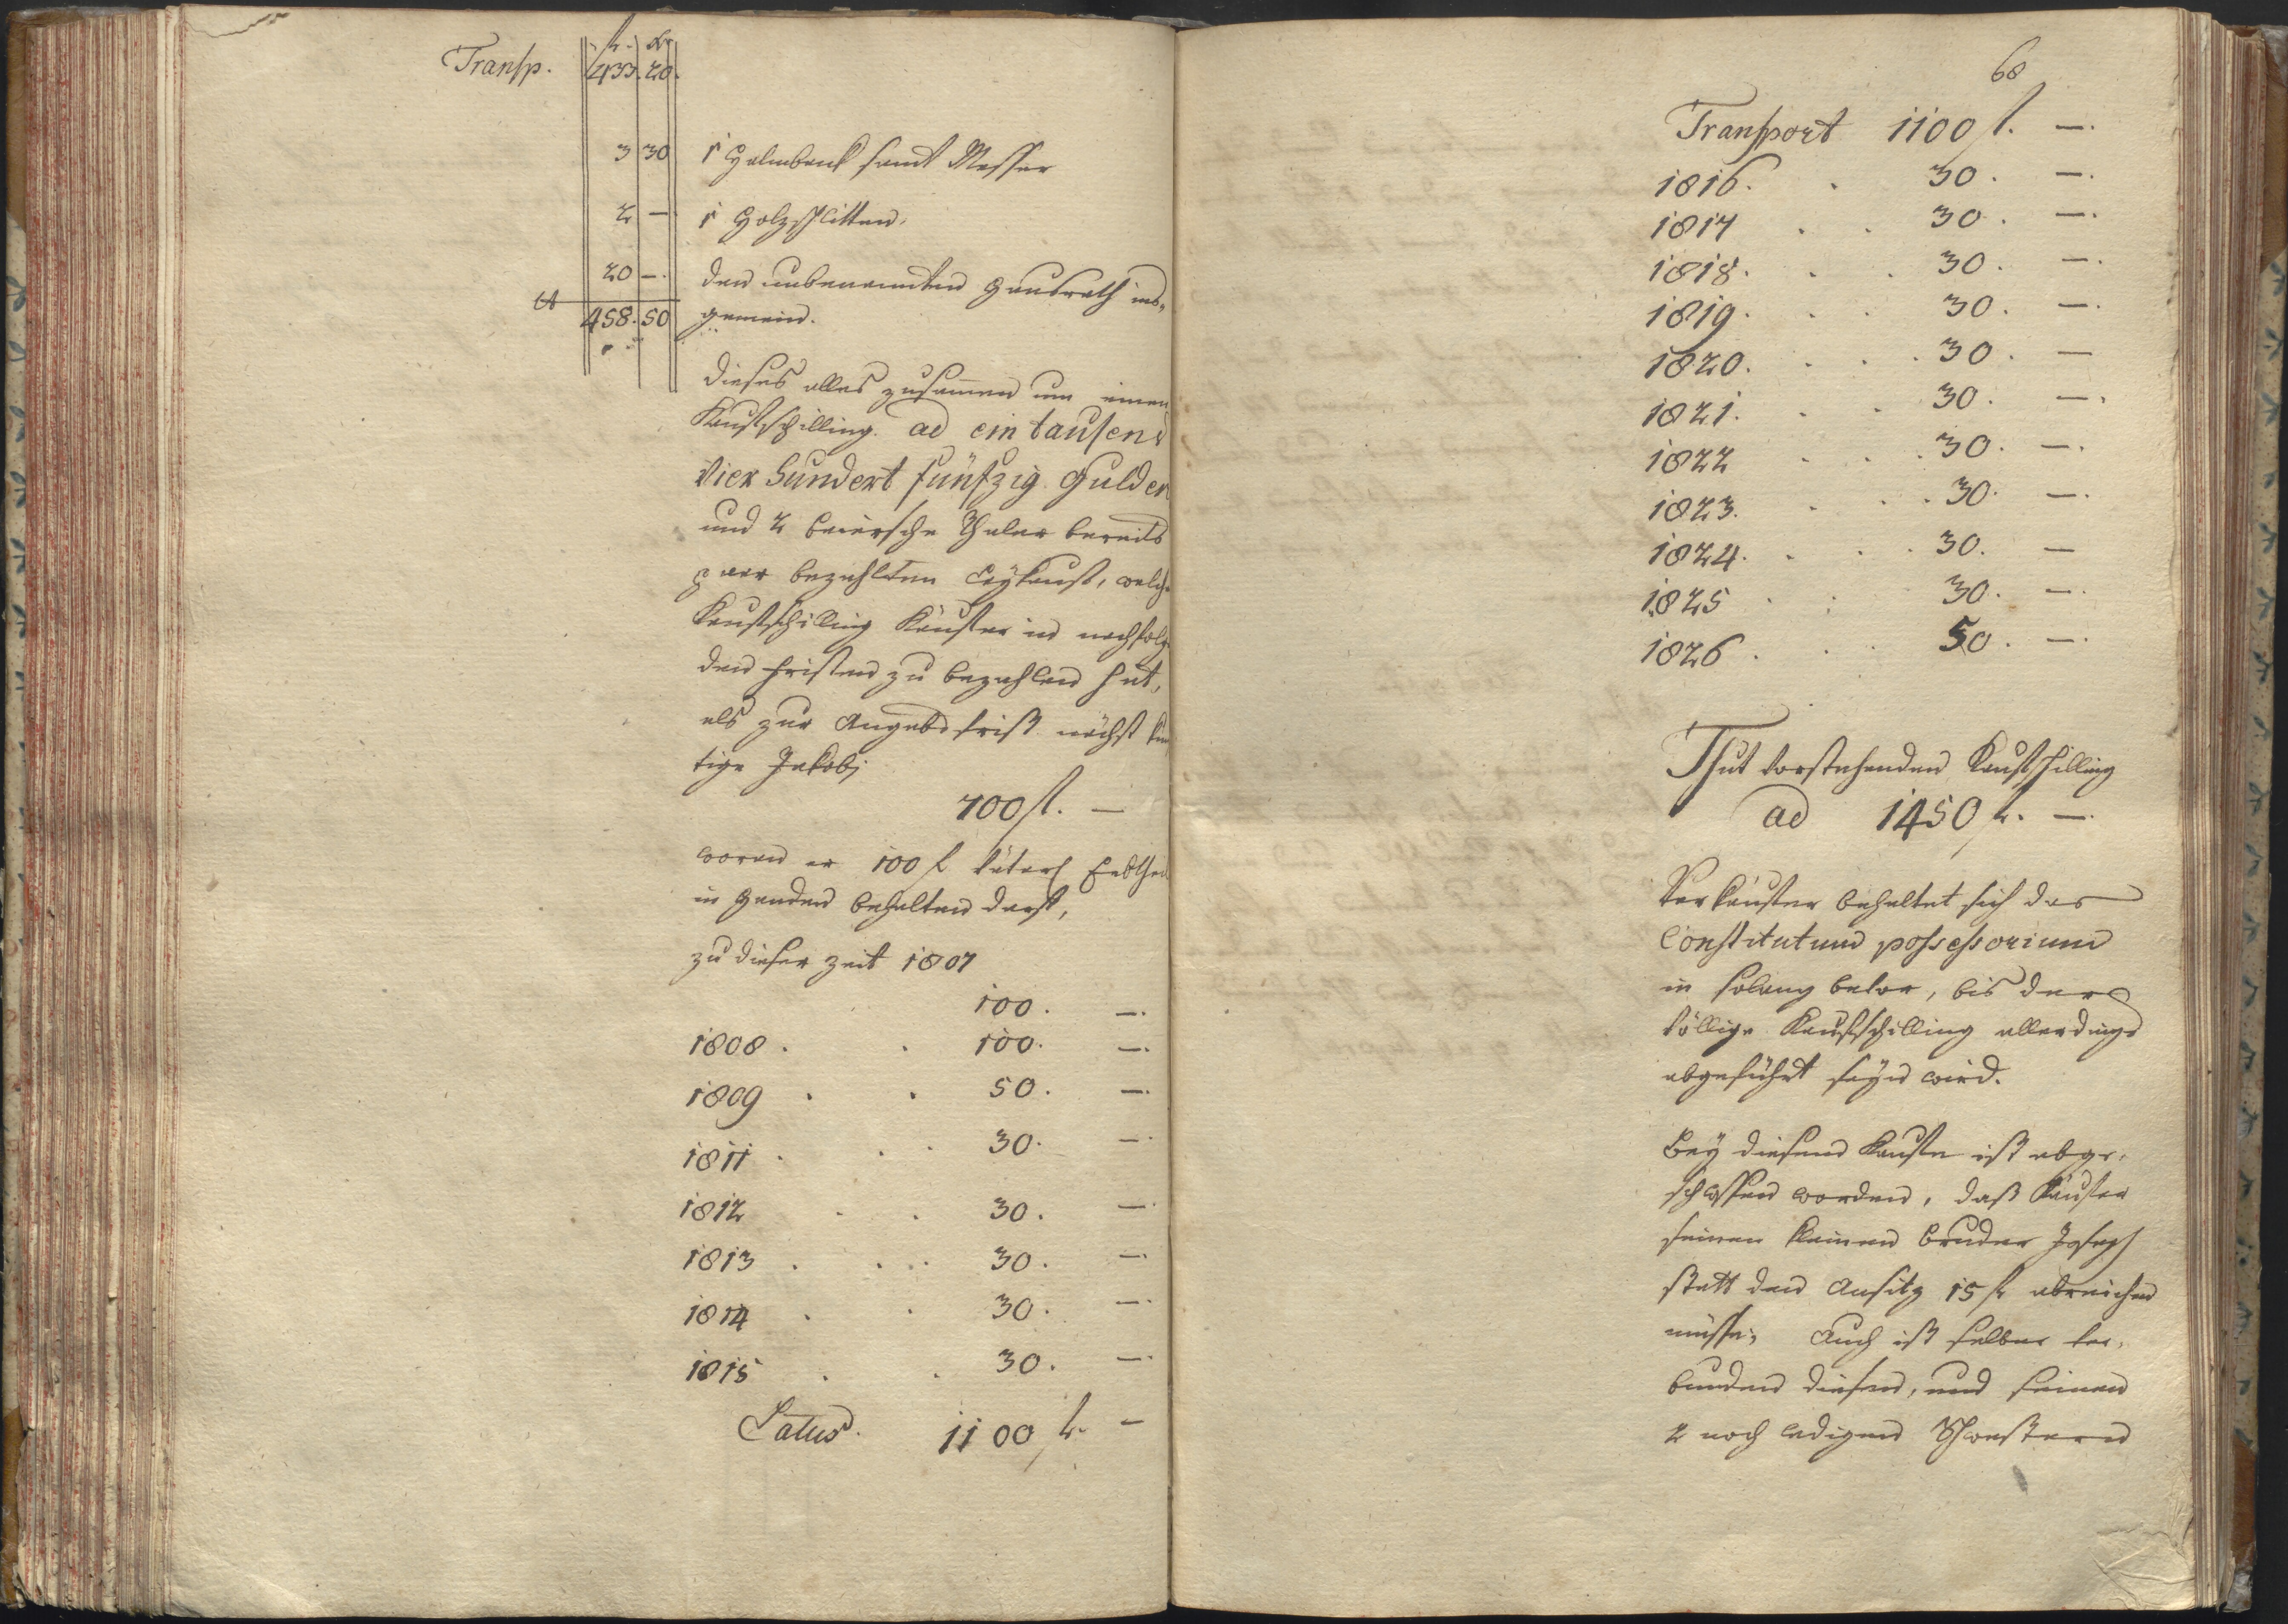 fl. Kr
Transp. 433. 20.
3 30 1 Halmbank samt Messer
2 — 1 Holzschlitten.
20 — den unbenannten Hausrath ins=
458. 50 gemein.
dieses alles zusammen um einen
Kaufschilling ad ein tausend
Vier hundert fünfzig Gulden
und 2 beiersche Thaler bereits
paar bezahlten Leykauf, welch
Kaufschilling Käufer in nachfolg
den Fristen zu bezahlen hat,
als zur Angabsfrist nächst kün
tige Jakobi
700 fl. —
woran er 100 fl väterl Erbtheil
in Handen behalten darf,
zu dieser Zeit 1807
100. —.
1808 . . 100. —.
1809 . . 50. —.
1811 . . . 30. —.
1812 . . 30. —.
1813 . . . 30. —.
1814 . . 30. —.
1815 . . 30. —.
Latus. 1100 fl. —
68
Transport 1100 fl. —.
1816. . 30. —.
1817 . . 30. —.
1818. . . 30. —.
1819. . . 30. —.
1820. . . . 30. —
1821. . . 30. —.
1822 . . . 30. —.
1823. . . . 30. —.
1824. . . . 30. —
1825 . . 30. —.
1826 . . . 50. —.
Thut vorstehenden Kaufschilling
ad 1450 fl. —.
Verkäufer behaltet sich das
Constitutum possessorium
in solang bevor, bis der
völlige Kaufschilling allerdings
abgeführt seyn wird.
Bey diesem Kaufe ist abge=
schlossen worden, daß Käufer
seinen kleinen Bruder Joseph
statt den Ansitz 15 fl abreichen
müsse, Auch ist selber ver=
bunden diesen, und seinen
2 noch ledigen Schwestern